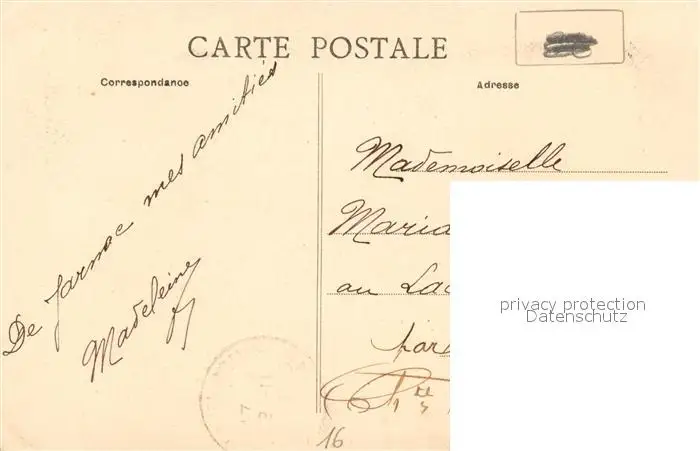 CARTE POSTALE
Correspondance
Adresse
De Jarnac mes amitiés
Madeleine
Mademoiselle
Maria
au Lac
par
16
privacy protection
Datenschutz